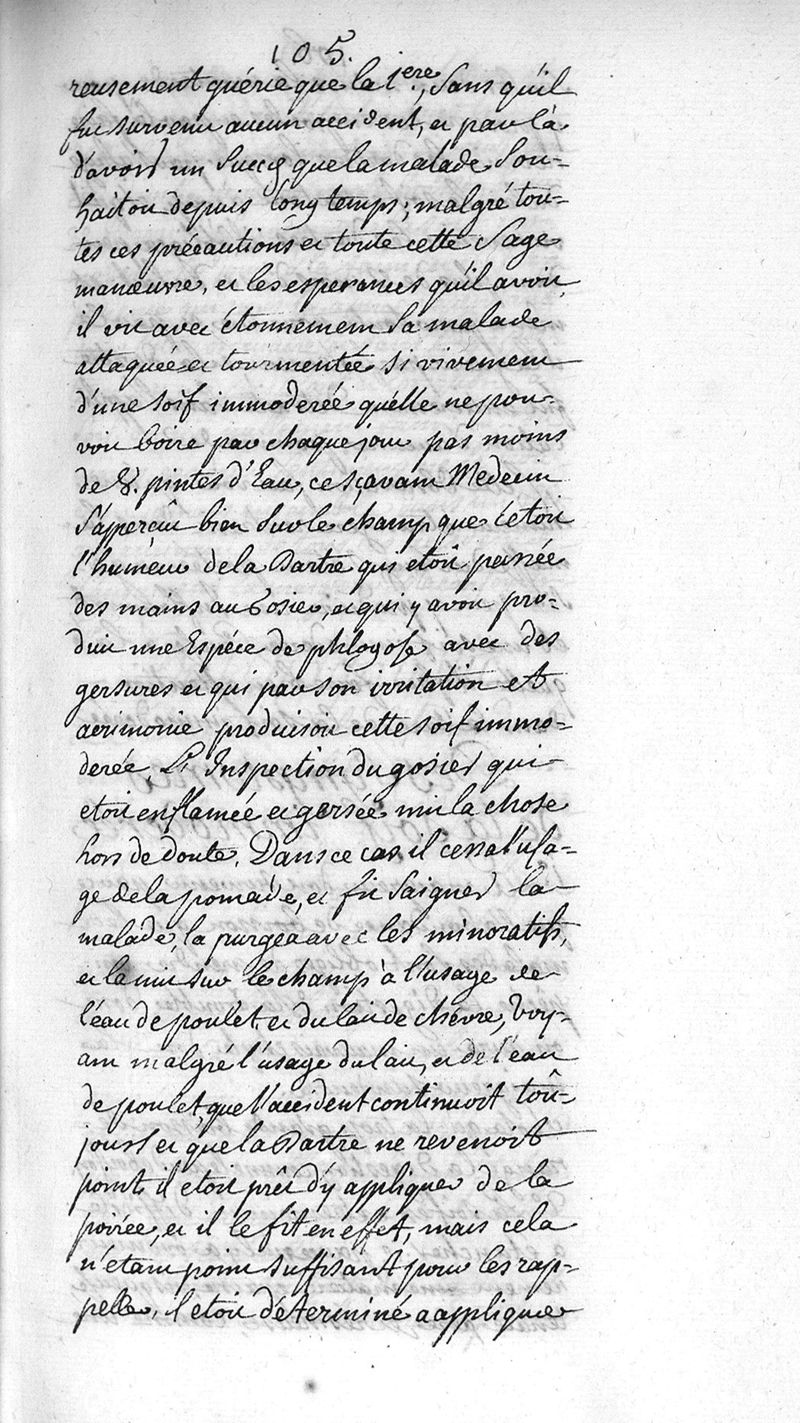 105.
reusement guérie que la 1ere, Sans qu'il
fut survenu aucun accident, et par là
d'avoir un Succés que la malade Sou=
haitoit depuis long temps; malgré tou=
tes ces précautions et toute cette Sage
manœuvre, et les esperances qu'il avoit,
il vit avec étonnement Sa malade
attaquée et tourmentée si vivement
d'une soif immoderée quelle ne pou=
voit boire par chaque jour pas moins
de 8. pintes d'Eau, ce sçavant Medecin
S'apperçût bien Sur le champ que c'etoit
l'humeur de la Dartre qui etoit passée
des mains au Gosier, et qui y avoit pro=
duit une Espéce de phlogose avec des
gersures et qui par son irritation et
acrimonie produisoit cette soif immo=
derée, L'Inspection du gosier qui
etoit enflamée et gersée mit la chose
hors de doute, Dans ce cas il cessa l'usa=
ge de la pomade, et fit Saigner la
malade, la purgea avec les minoratifs,
et la mit sur le champ à l'usage de
l'eau de poulet et du lait de chévre, Voy=
ant malgré l'usage du lait, et de l'eau
de poulet, que l'accident continuoit toû=
jours et que la Dartre ne revenoit
point, il etoit prêt d'y appliquer de la
poirée, et il le fit en effet, mais cela
n'étant point suffisant pour les rap=
peller, il etoit déterminé a appliquer